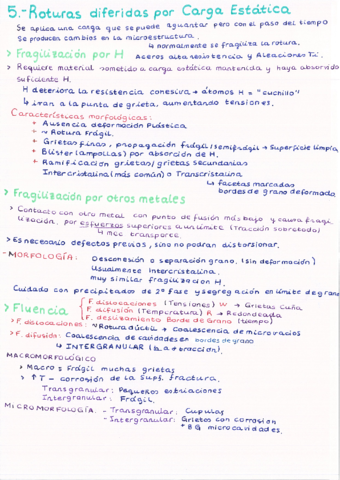 5.- Roturas diferidas por Carga Estática
Se aplica una carga que se puede aguantar pero con el paso del tiempo
Se producen cambios en la microestructura.
↳ normalmente se fragiliza la rotura.
> Fragilización por H
Aceros alta resistencia y Aleaciones Ti.
> Requiere material sometido a carga estática mantenida y haya absorvido
suficiente H.
H deteriora la resistencia cohesiva → átomos H = "cuchillo"
↳ iran a la punta de grieta, aumentando tensiones.
Características morfológicas:
+ Ausencia deformación Plástica
+ ~ Rotura Frágil.
+ Grietas finas, propagación frágil/semifrágil → Superficie limpia
+ Blister (ampollas) por absorción de H.
+ Ramificación grietas/grietas secundarias
Intercristalina (más común) o Transcristalina
↳ facetas marcadas
bordes de grano deformada
> Fragilización por otros metales
> Contacto con otro metal con punto de fusión más bajo y causa fragi
lización, por esfuerzos superiores a un límite (Tracción sobretodo)
↳ mec transporte
> Es necesario defectos previos, sino no podran distorsionar.
- MORFOLOGÍA: Descohesión o separación grano. (sin deformación)
Usualmente Intercristalina.
muy similar fragilizacion H.
Cuidado con precipitados de 2ª fase y segregación en límite de grano
> Fluencia
F. dislocaciones (Tensiones) W → Grietas Cuña
F. difusión (Temperatura) R → Redondeada
F. deslizamiento Borde de Grano (tiempo)
> F. dislocaciones: ~ Rotura dúctil → Coalescencia de microvacios
> F. difusión: Coalescencia de cavidades en bordes de grano
↳ INTERGRANULAR (⊥ a tracción).
MACROMORFOLÓGICO
> Macro: Frágil muchas grietas
> ↑T - corrosión de la Supf. fractura.
Transgranular: Pequeñas estriaciones
Intergranular: Frágil.
MICROMORFOLOGÍA. - Transgranular: Cupulas
- Intergranular: Grietas con corrosion
+ BG microcavidades.